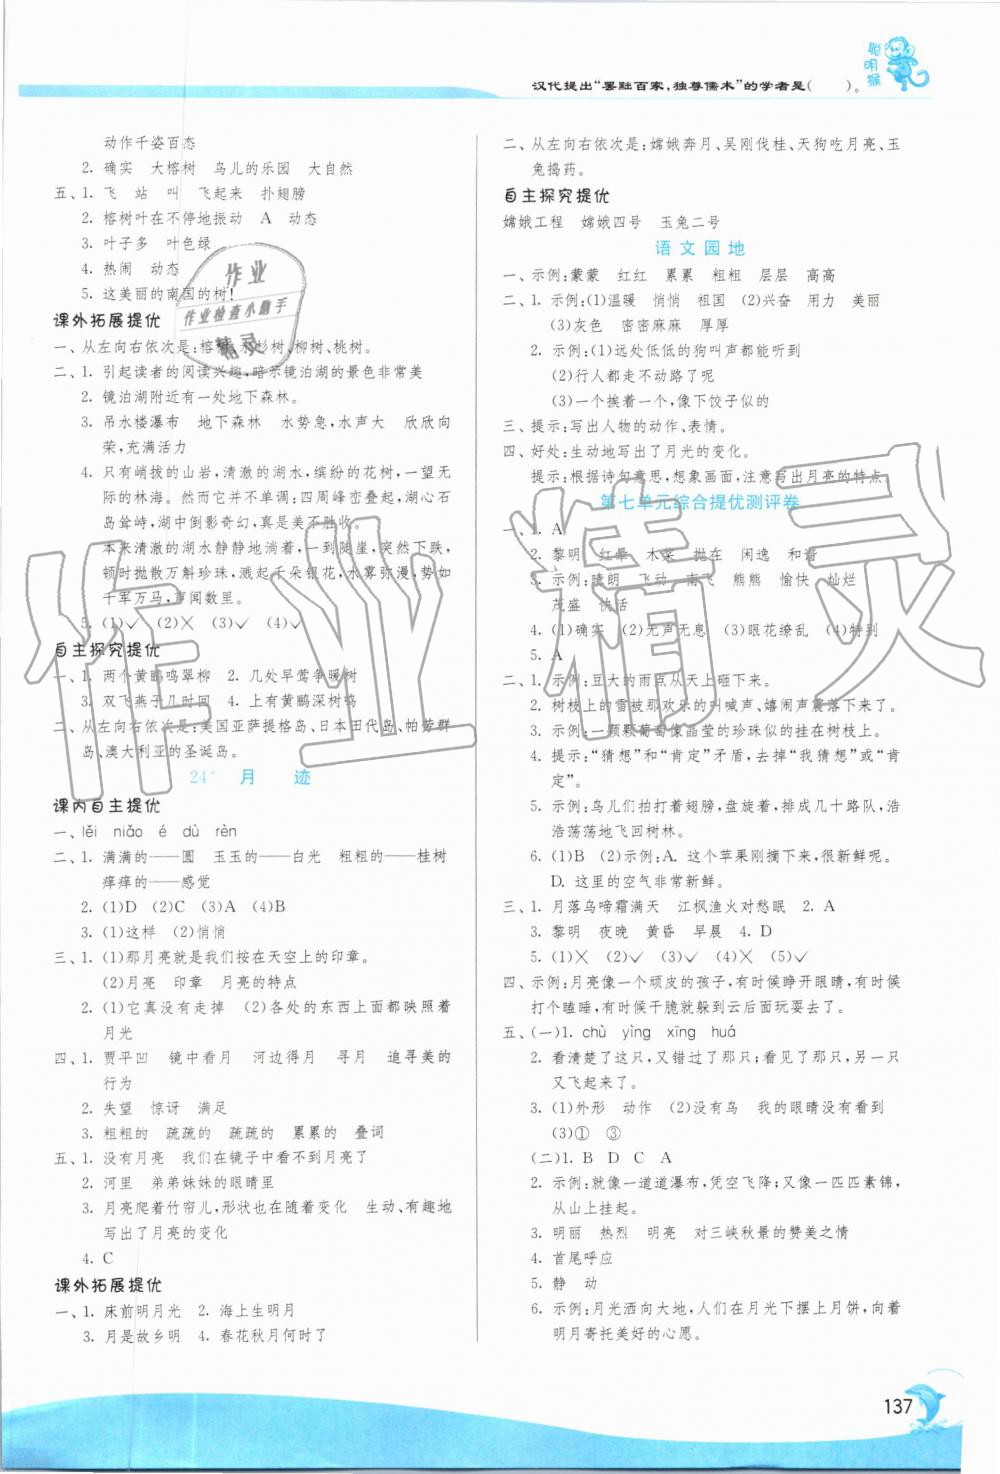 聪明猴
汉代提出“罢黜百家,独尊儒术”的学者是(　　)。
动作千姿百态
2. 确实　大榕树　鸟儿的乐园　大自然
五、1. 飞　站　叫　飞起来　扑翅膀
2. 榕树叶在不停地振动　A　动态
3. 叶子多　叶色绿
4. 热闹　动态
5. 这美丽的南国的树!
课外拓展提优
一、从左向右依次是:榕树、水杉树、柳树、桃树。
二、1. 引起读者的阅读兴趣,暗示镜泊湖的景色非常美
2. 镜泊湖附近有一处地下森林。
3. 吊水楼瀑布　地下森林　水势急,水声大　欣欣向
荣,充满活力
4. 只有峭拔的山岩,清澈的湖水,缤纷的花树,一望无
际的林海。然而它并不单调:四周峰峦叠起,湖心石
岛耸峙,湖中倒影奇幻,真是美不胜收。
本来清澈的湖水静静地淌着,一到陡崖,突然下跌,
顿时抛散万斛珍珠,溅起千朵银花,水雾弥漫,势如
千军万马,声闻数里。
5. (1)✓　(2)✕　(3)✓　(4)✓
自主探究提优
一、1. 两个黄鹂鸣翠柳　2. 几处早莺争暖树
3. 双飞燕子几时回　4. 上有黄鹂深树鸣
二、从左向右依次是:美国亚萨提格岛、日本田代岛、帕劳群
岛、澳大利亚的圣诞岛。
24*　月　迹
课内自主提优
一、lěi　niǎo　é　dù　rèn
二、1. 满满的——圆　玉玉的——白光　粗粗的——桂树
痒痒的——感觉
2. (1)D　(2)C　(3)A　(4)B
3. (1)这样　(2)悄悄
三、1. (1)那月亮就是我们按在天空上的印章。
(2)月亮　印章　月亮的特点
2. (1)它真没有走掉　(2)各处的东西上面都映照着
月光
四、1. 贾平凹　镜中看月　河边得月　寻月　追寻美的
行为
2. 失望　惊讶　满足
3. 粗粗的　疏疏的　疏疏的　累累的　叠词
五、1. 没有月亮　我们在镜子中看不到月亮了
2. 河里　弟弟妹妹的眼睛里
3. 月亮爬着竹帘儿,形状也在随着变化　生动、有趣地
写出了月亮的变化
4. C
课外拓展提优
一、1. 床前明月光　2. 海上生明月
3. 月是故乡明　4. 春花秋月何时了
二、从左向右依次是:嫦娥奔月、吴刚伐桂、天狗吃月亮、玉
兔捣药。
自主探究提优
嫦娥工程　嫦娥四号　玉兔二号
语文园地
一、示例:蒙蒙　红红　累累　粗粗　层层　高高
二、1. 示例:(1)温暖　悄悄　祖国　(2)兴奋　用力　美丽
(3)灰色　密密麻麻　厚厚
2. 示例:(1)远处低低的狗叫声都能听到
(2)行人都走不动路了呢
(3)一个挨着一个,像下饺子似的
三、提示:写出人物的动作、表情。
四、好处:生动地写出了月光的变化。
提示:根据诗句意思,想象画面,注意写出月亮的特点。
第七单元综合提优测评卷
一、1. A
2. 黎明　红晕　木桨　抛在　闲逸　和谐
3. 示例:晴朗　飞动　南飞　熊熊　愉快　灿烂
茂盛　快活
4. (1)确实　(2)无声无息　(3)眼花缭乱　(4)特别
5. A
二、1. 示例:豆大的雨点从天上砸下来。
2. 树枝上的雪被那欢乐的叫喊声、嬉闹声震落下来了。
3. 示例:一颗颗葡萄像晶莹的珍珠似的挂在树枝上。
4. 提示:“猜想”和“肯定”矛盾,改成“我猜想”或“我肯
定”。
5. 示例:鸟儿们拍打着翅膀,盘旋着,排成几十路队,浩
浩荡荡地飞回树林。
6. (1)B　(2)示例:A. 这个苹果刚摘下来,很新鲜呢。
D. 这里的空气非常新鲜。
三、1. 月落乌啼霜满天　江枫渔火对愁眠　2. A
3. 黎明　夜晚　黄昏　早晨　4. D
5. (1)✕　(2)✓　(3)✓　(4)✕　(5)✓
四、示例:月亮像一个顽皮的孩子,有时候睁开眼睛,有时候
打个瞌睡,有时候干脆就躲到云后面玩耍去了。
五、(一)1. chù　yìng　xīng　huá
2. 看清楚了这只,又错过了那只;看见了那只,另一只
又飞起来了。
3. (1)外形　动作　(2)没有鸟　我的眼睛没有看到
(3)①　③
(二)1. B　D　C　A
2. 示例:就像一道道瀑布,凭空飞降;又像一匹匹素锦,
从山上挂起。
3. 明丽　热烈　明亮　对三峡秋景的赞美之情
4. 首尾呼应
5. 静　动
6. 示例:月光洒向大地,人们在月光下摆上月饼,向着
明月寄托美好的心愿。
137
作业
作业检查小助手
精灵
作业精灵